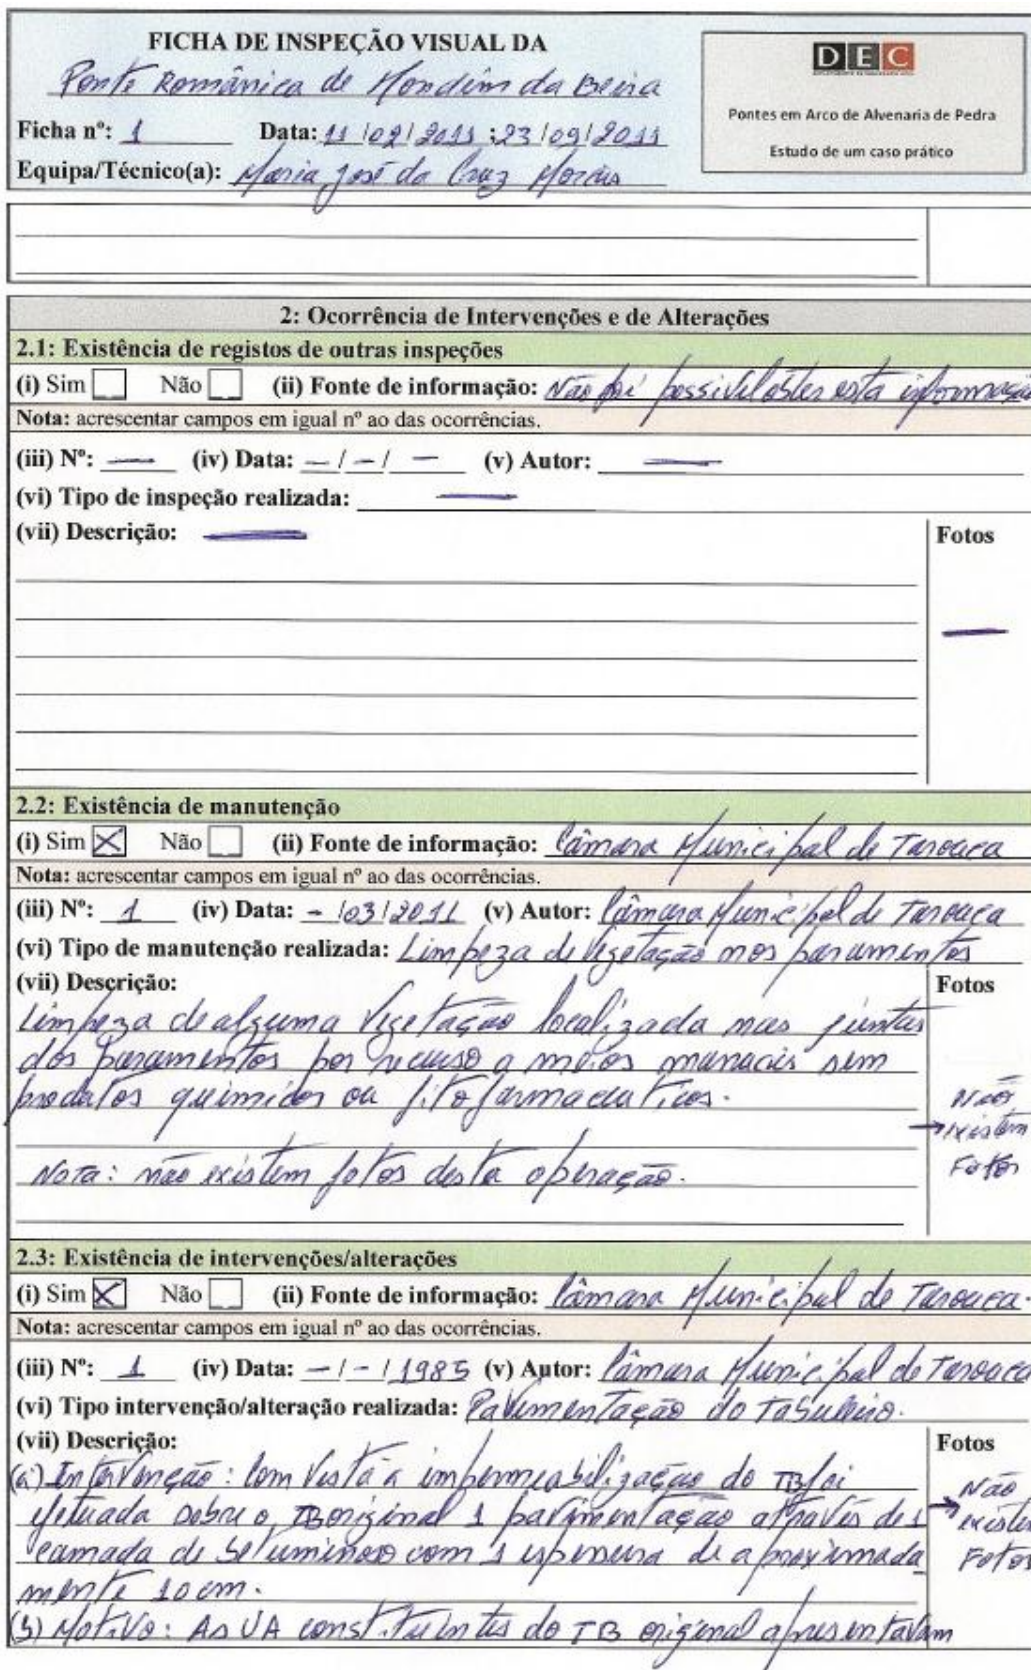 FICHA DE INSPEÇÃO VISUAL DA
Ponte Românica de Mondim da Beira
Ficha nº: 1 Data: 11/02/2011 ; 23/09/2011
Equipa/Técnico(a): Maria José da Cruz Morais
DEC
Pontes em Arco de Alvenaria de Pedra
Estudo de um caso prático
2: Ocorrência de Intervenções e de Alterações
2.1: Existência de registos de outras inspeções
(i) Sim Não (ii) Fonte de informação: Não foi possível obter esta informação
Nota: acrescentar campos em igual nº ao das ocorrências.
(iii) Nº: — (iv) Data: —/—/— (v) Autor: —
(vi) Tipo de inspeção realizada: —
(vii) Descrição: — Fotos
—
2.2: Existência de manutenção
(i) Sim X Não (ii) Fonte de informação: Câmara Municipal de Tarouca
Nota: acrescentar campos em igual nº ao das ocorrências.
(iii) Nº: 1 (iv) Data: -/03/2011 (v) Autor: Câmara Municipal de Tarouca
(vi) Tipo de manutenção realizada: Limpeza de vegetação nos paramentos
(vii) Descrição: Fotos
Limpeza de alguma vegetação localizada nas juntas
dos paramentos por recurso a meios manuais sem
produtos químicos ou fitofarmaceuticos.
→ Não existem Fotos
Nota: não existem fotos desta operação.
2.3: Existência de intervenções/alterações
(i) Sim X Não (ii) Fonte de informação: Câmara Municipal de Tarouca.
Nota: acrescentar campos em igual nº ao das ocorrências.
(iii) Nº: 1 (iv) Data: -/-/1985 (v) Autor: Câmara Municipal de Tarouca
(vi) Tipo intervenção/alteração realizada: Pavimentação do Tabuleiro.
(vii) Descrição: Fotos
(a) Intervenção: Com vista à impermeabilização do TB foi
efetuada sobre o TB original 1 pavimentação através de 1
camada de betuminoso com 1 espessura de aproximada
mente 10 cm.
→ Não existem Fotos
(b) Motivo: As UA constituintes do TB original apresentavam